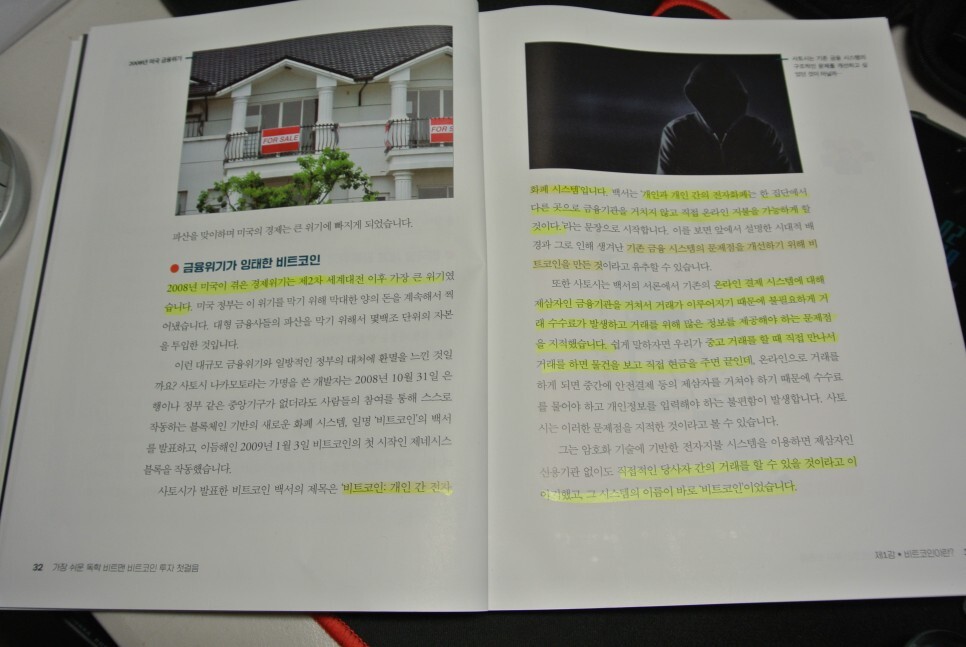 2008년 미국 금융위기
FOR SALE
FOR S
파산을 맞이하며 미국의 경제는 큰 위기에 빠지게 되었습니다.
● 금융위기가 잉태한 비트코인
2008년 미국이 겪은 경제위기는 제2차 세계대전 이후 가장 큰 위기였
습니다. 미국 정부는 이 위기를 막기 위해 막대한 양의 돈을 계속해서 찍
어냈습니다. 대형 금융사들의 파산을 막기 위해서 몇백조 단위의 자본
을 투입한 것입니다.
이런 대규모 금융위기와 일방적인 정부의 대처에 환멸을 느낀 것일
까요? 사토시 나카모토라는 가명을 쓴 개발자는 2008년 10월 31일 은
행이나 정부 같은 중앙기구가 없더라도 사람들의 참여를 통해 스스로
작동하는 블록체인 기반의 새로운 화폐 시스템, 일명 '비트코인'의 백서
를 발표하고, 이듬해인 2009년 1월 3일 비트코인의 첫 시작인 제네시스
블록을 작동했습니다.
사토시가 발표한 비트코인 백서의 제목은 '비트코인: 개인 간 전자
32 가장 쉬운 독학 비트맨 비트코인 투자 첫걸음
사토시는 기존 금융 시스템의
구조적인 문제를 개선하고 싶
었던 것이 아닐까.
화폐 시스템'입니다. 백서는 '개인과 개인 간의 전자화폐는 한 집단에서
다른 곳으로 금융기관을 거치지 않고 직접 온라인 지불을 가능하게 할
것이다.'라는 문장으로 시작합니다. 이를 보면 앞에서 설명한 시대적 배
경과 그로 인해 생겨난 기존 금융 시스템의 문제점을 개선하기 위해 비
트코인을 만든 것이라고 유추할 수 있습니다.
또한 사토시는 백서의 서론에서 기존의 온라인 결제 시스템에 대해
제삼자인 금융기관을 거쳐서 거래가 이루어지기 때문에 불필요하게 거
래 수수료가 발생하고 거래를 위해 많은 정보를 제공해야 하는 문제점
을 지적했습니다. 쉽게 말하자면 우리가 중고 거래를 할 때 직접 만나서
거래를 하면 물건을 보고 직접 현금을 주면 끝인데, 온라인으로 거래를
하게 되면 중간에 안전결제 등의 제삼자를 거쳐야 하기 때문에 수수료
를 물어야 하고 개인정보를 입력해야 하는 불편함이 발생합니다. 사토
시는 이러한 문제점을 지적한 것이라고 볼 수 있습니다.
그는 암호화 기술에 기반한 전자지불 시스템을 이용하면 제삼자인
신용기관 없이도 직접적인 당사자 간의 거래를 할 수 있을 것이라고 이
야기했고, 그 시스템의 이름이 바로 '비트코인'이었습니다.
제1강 • 비트코인이란?